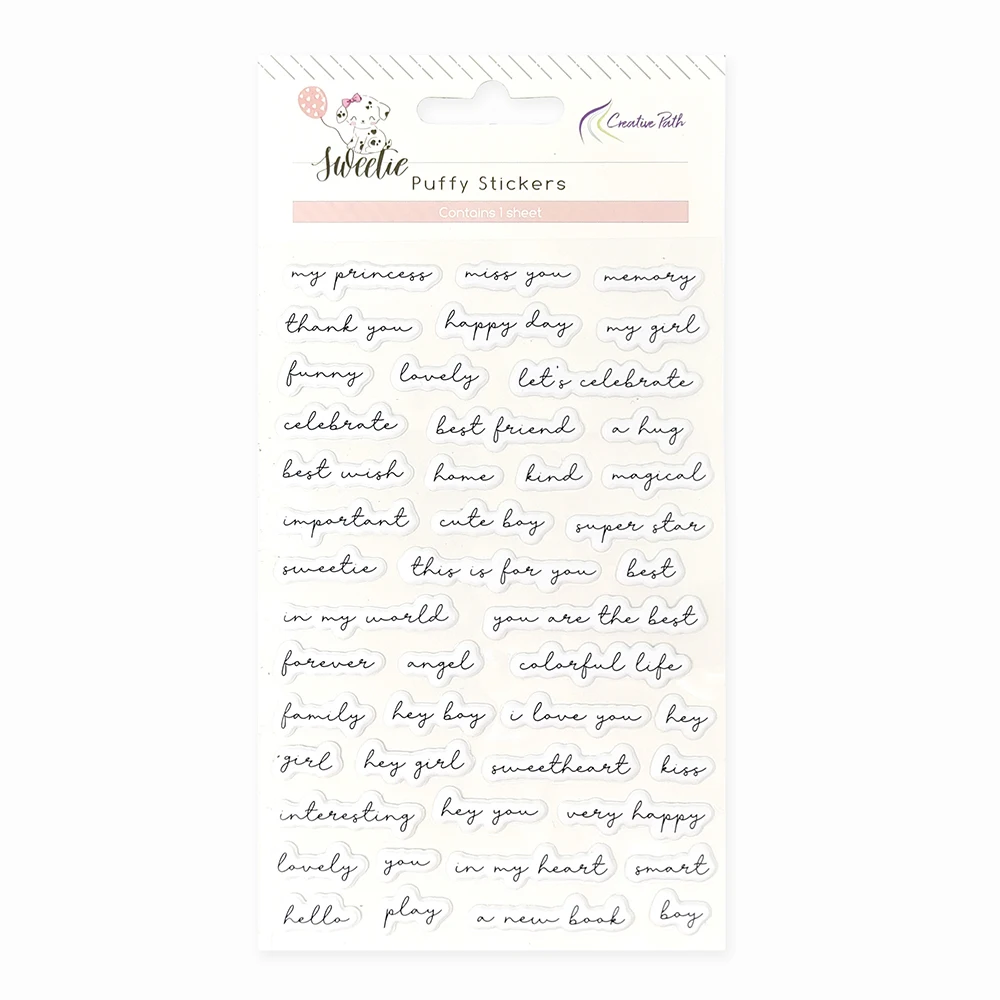 Sweetie
Creative Path
Puffy Stickers
Contains 1 sheet
my princess miss you memory
thank you happy day my girl
funny lovely let's celebrate
celebrate best friend a hug
best wish home kind magical
important cute boy super star
sweetie this is for you best
in my world you are the best
forever angel colorful life
family hey boy i love you hey
girl hey girl sweetheart kiss
interesting hey you very happy
lovely you in my heart smart
hello play a new book boy